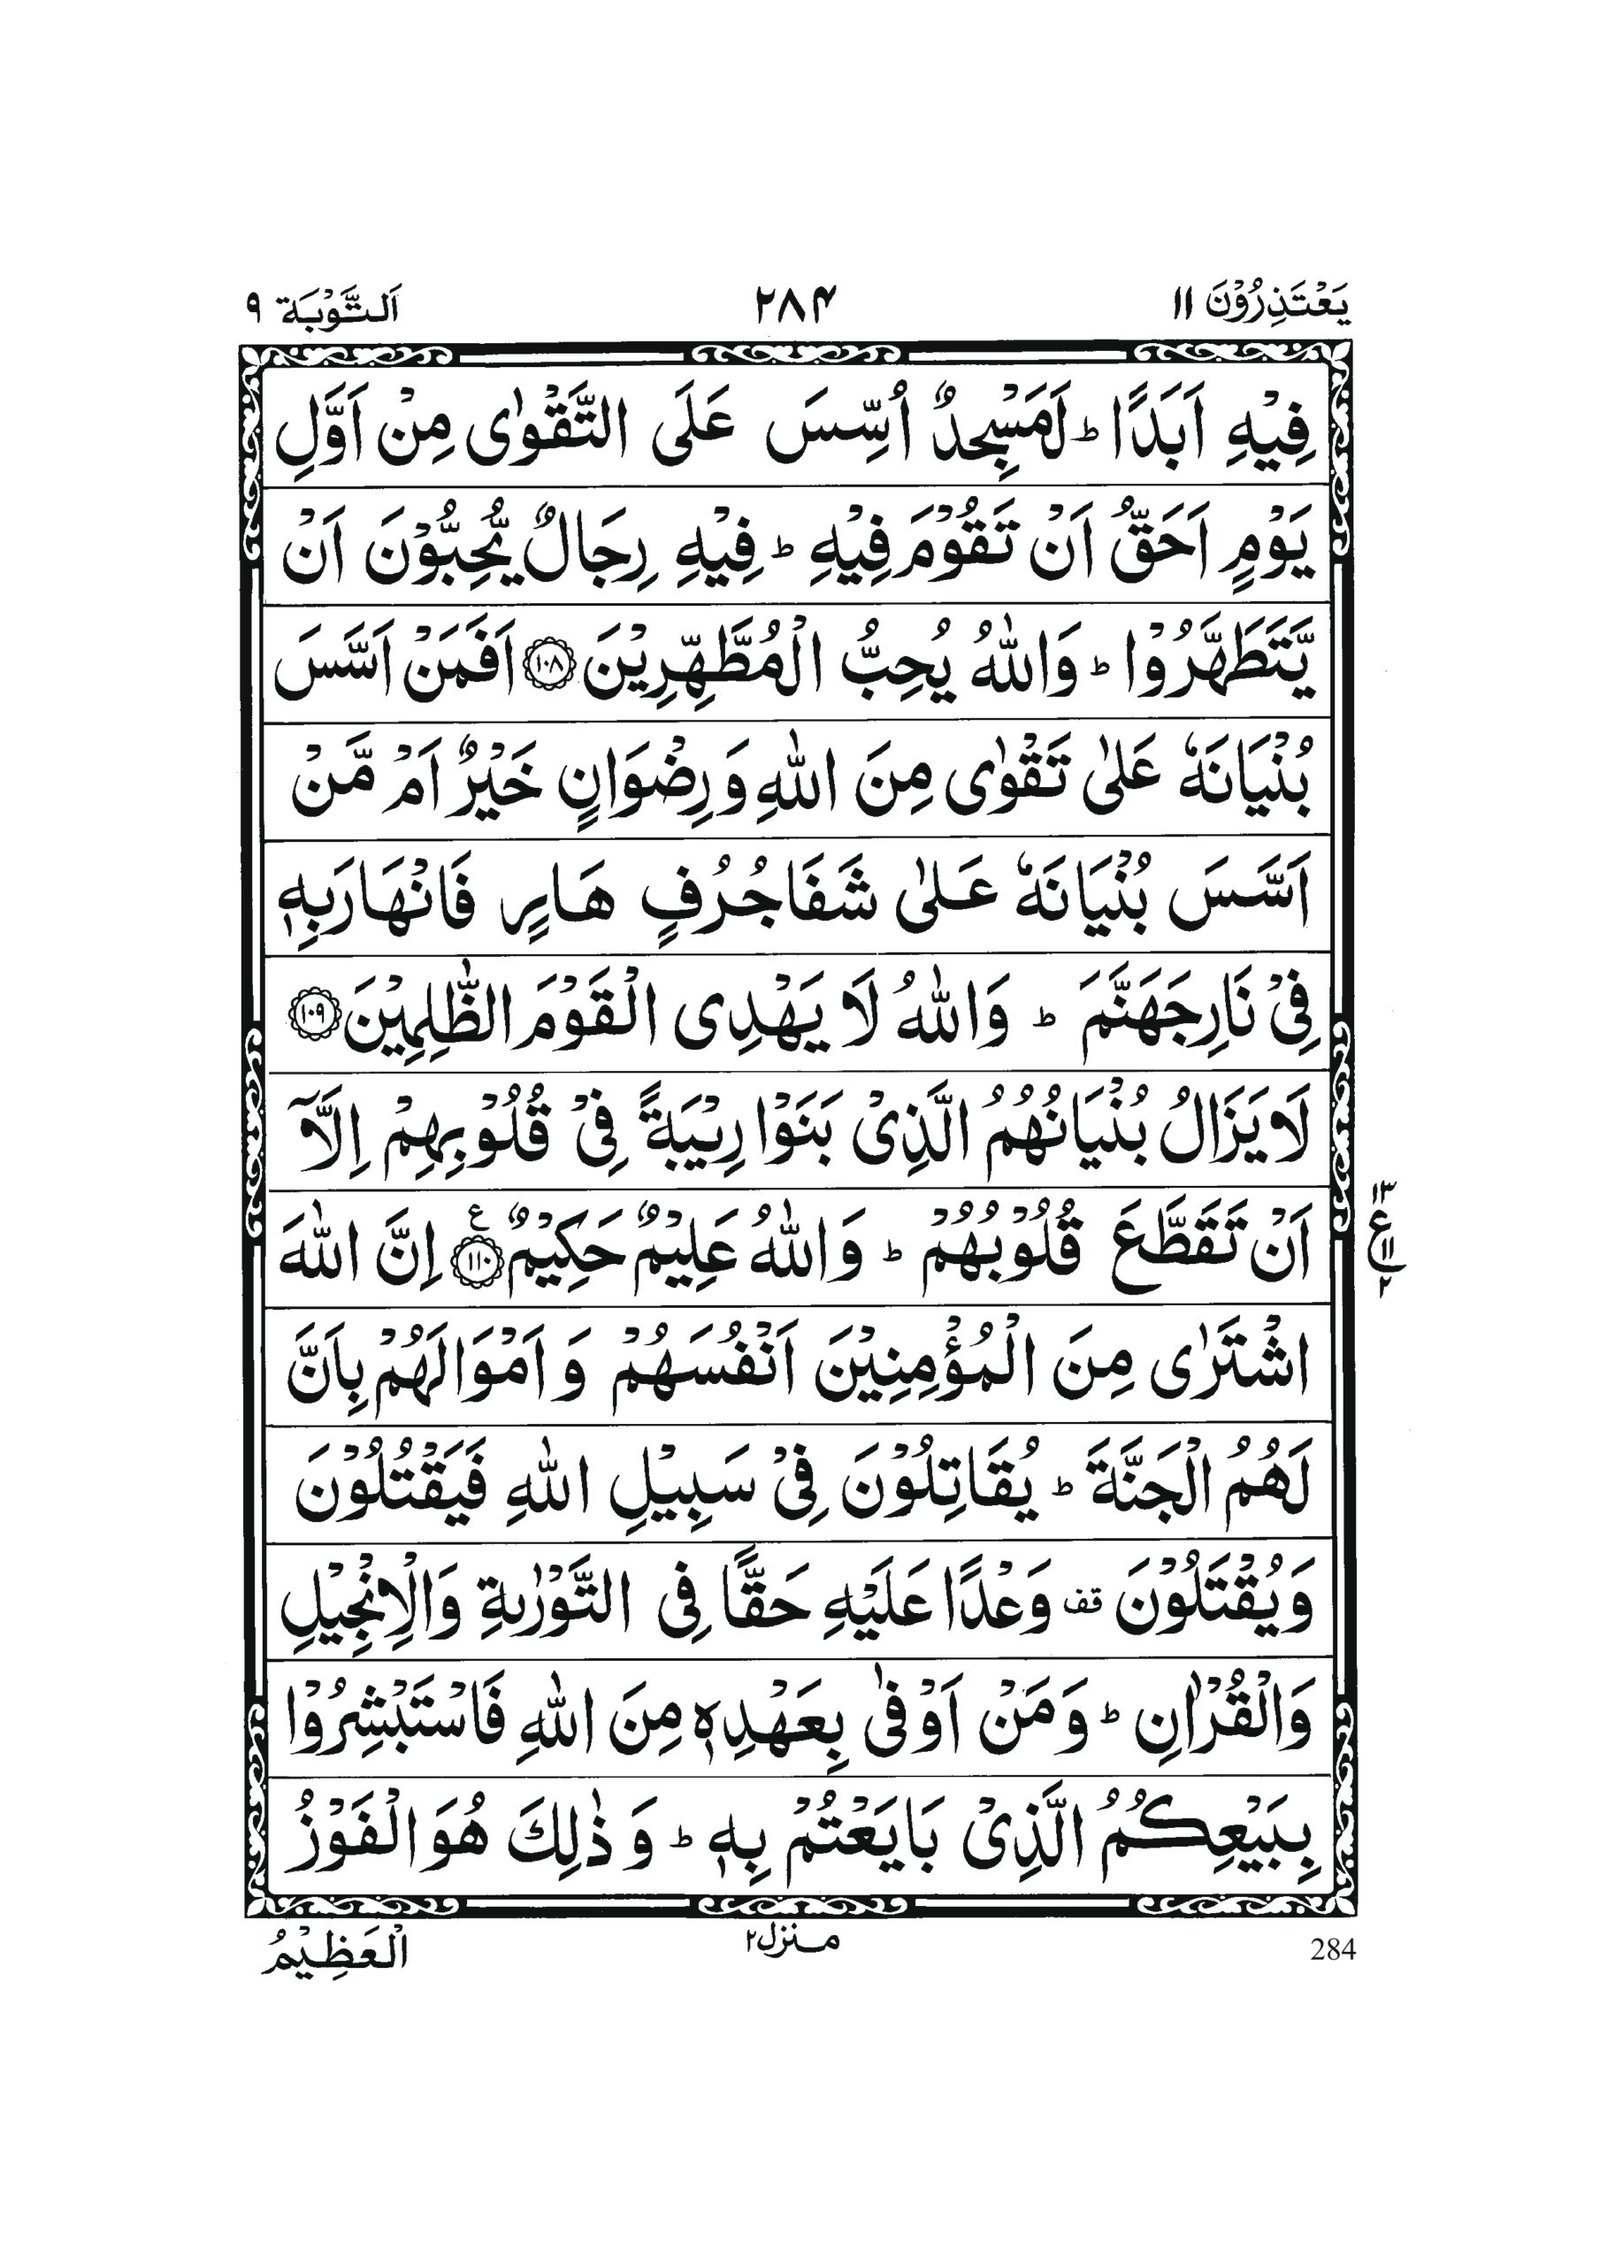 يَعْتَذِرُوْنَ ۱۱ ۲۸۴ اَلتَّوْبَة ۹
فِيْهِ اَبَدًا ؕ لَمَسْجِدٌ اُسِّسَ عَلَى التَّقْوٰى مِنْ اَوَّلِ
يَوْمٍ اَحَقُّ اَنْ تَقُوْمَ فِيْهِ ؕ فِيْهِ رِجَالٌ يُّحِبُّوْنَ اَنْ
يَّتَطَهَّرُوْا ؕ وَاللّٰهُ يُحِبُّ الْمُطَّهِّرِيْنَ ﴿۱۰۸﴾ اَفَمَنْ اَسَّسَ
بُنْيَانَهٗ عَلٰى تَقْوٰى مِنَ اللّٰهِ وَرِضْوَانٍ خَيْرٌ اَمْ مَّنْ
اَسَّسَ بُنْيَانَهٗ عَلٰى شَفَا جُرُفٍ هَارٍ فَانْهَارَ بِهٖ
فِيْ نَارِ جَهَنَّمَ ؕ وَاللّٰهُ لَا يَهْدِى الْقَوْمَ الظّٰلِمِيْنَ ﴿۱۰۹﴾
لَا يَزَالُ بُنْيَانُهُمُ الَّذِيْ بَنَوْا رِيْبَةً فِيْ قُلُوْبِهِمْ اِلَّاۤ
اَنْ تَقَطَّعَ قُلُوْبُهُمْ ؕ وَاللّٰهُ عَلِيْمٌ حَكِيْمٌ ﴿۱۱۰﴾ ع اِنَّ اللّٰهَ
۱۳
ع
۱۱
۲
اشْتَرٰى مِنَ الْمُؤْمِنِيْنَ اَنْفُسَهُمْ وَاَمْوَالَهُمْ بِاَنَّ
لَهُمُ الْجَنَّةَ ؕ يُقَاتِلُوْنَ فِيْ سَبِيْلِ اللّٰهِ فَيَقْتُلُوْنَ
وَيُقْتَلُوْنَ قف وَعْدًا عَلَيْهِ حَقًّا فِى التَّوْرٰىةِ وَالْاِنْجِيْلِ
وَالْقُرْاٰنِ ؕ وَمَنْ اَوْفٰى بِعَهْدِهٖ مِنَ اللّٰهِ فَاسْتَبْشِرُوْا
بِبَيْعِكُمُ الَّذِيْ بَايَعْتُمْ بِهٖ ؕ وَذٰلِكَ هُوَ الْفَوْزُ
284 منزل۲ الْعَظِيْمُ